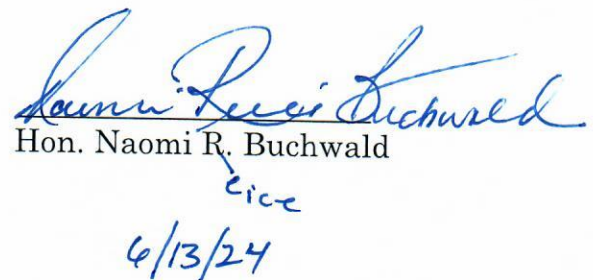 Naomi Reice Buchwald
Hon. Naomi R. Buchwald
eice
6/13/24